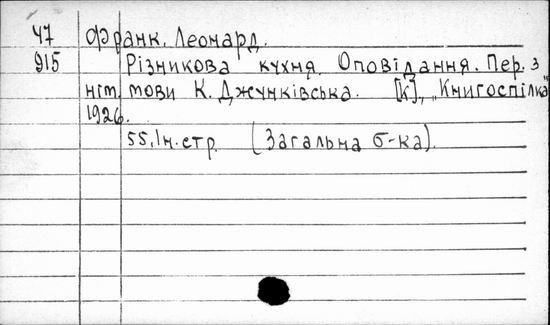 47 Франк, Леонард.
915 Різникова кухня. Оповідання. Пер. з
нім. мови К. Джунківська. [К], "Книгоспілка"
1926.
55, 1н. стр. (Загальна б-ка).